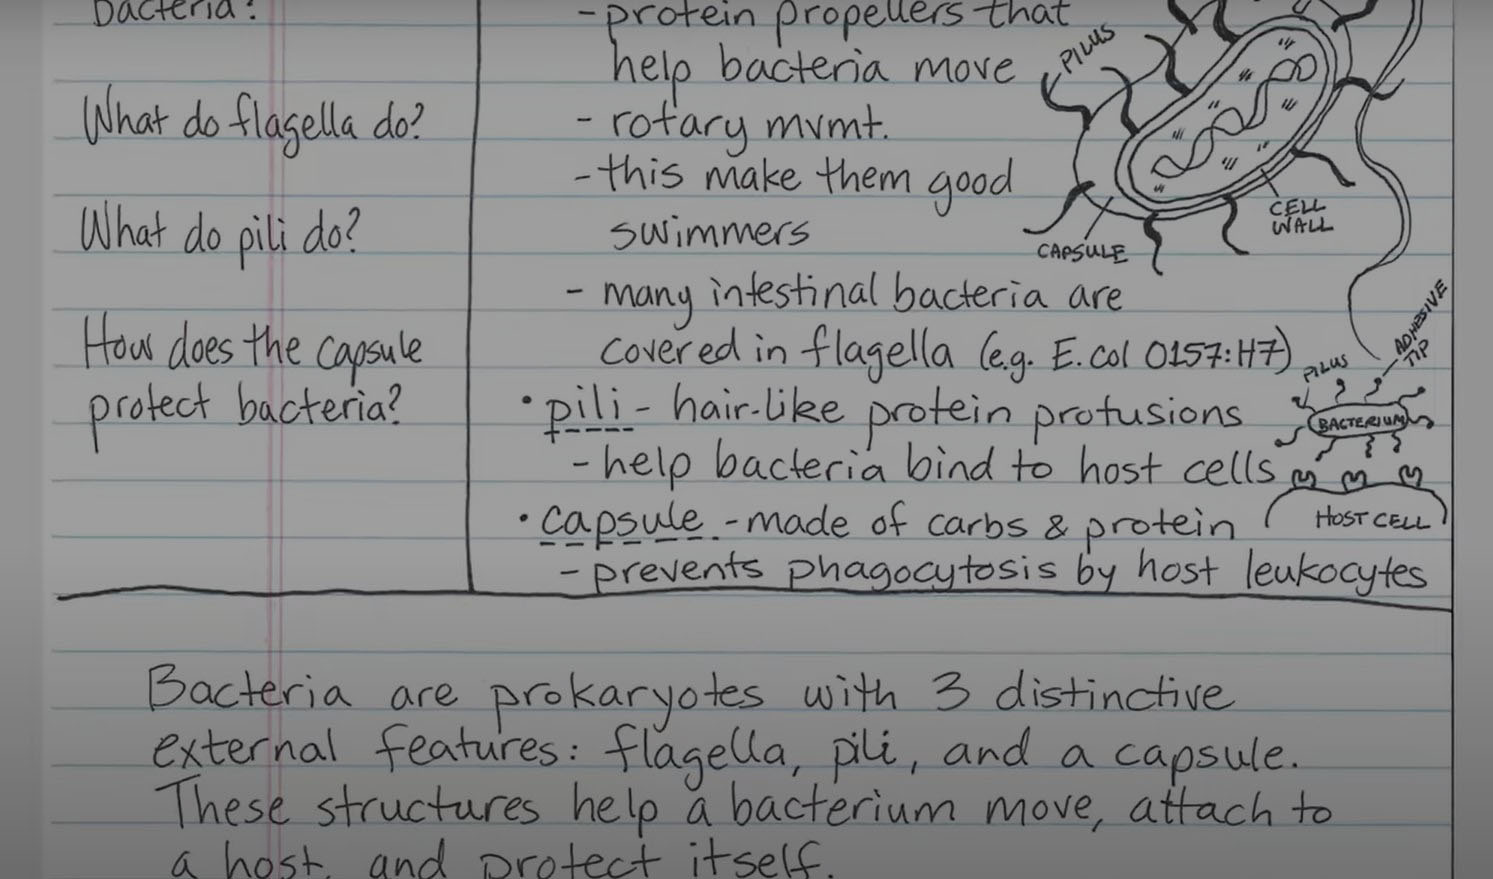 Bacteria?
- protein propellers that
help bacteria move
What do flagella do?
- rotary mvmt.
- this make them good
swimmers
What do pili do?
- many intestinal bacteria are
covered in flagella (e.g. E.col O157:H7)
How does the capsule
protect bacteria?
• pili - hair-like protein protusions
- help bacteria bind to host cells
• capsule - made of carbs & protein
- prevents phagocytosis by host leukocytes
PILUS
CELL
WALL
CAPSULE
PILUS
ADHESIVE
TIP
BACTERIUM
HOST CELL
Bacteria are prokaryotes with 3 distinctive
external features: flagella, pili, and a capsule.
These structures help a bacterium move, attach to
a host, and protect itself.